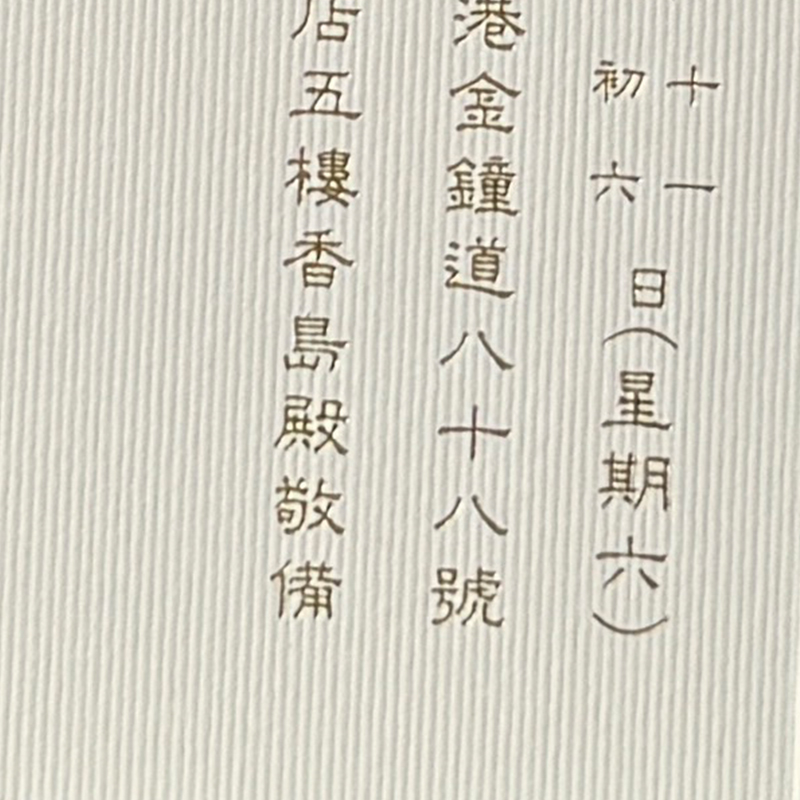 十一
初六
日(星期六)
港金鐘道八十八號
店五樓香島殿敬備